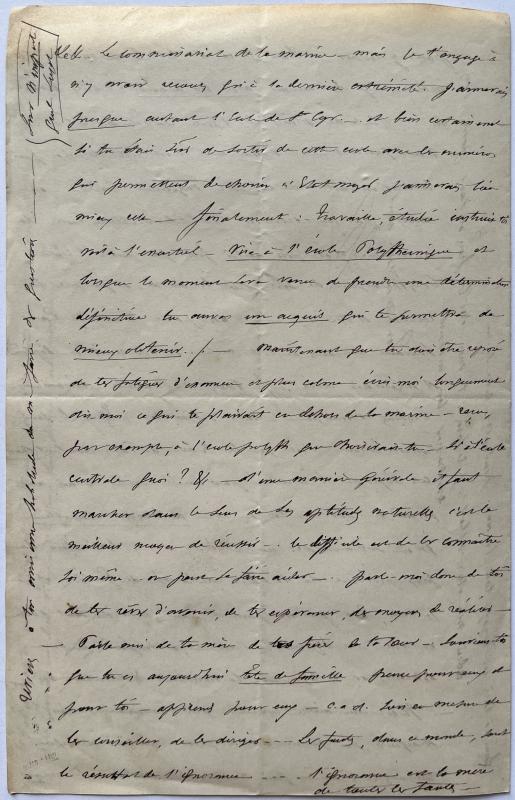 le commissariat de la marine — mais je t'engage à
n'y avoir recours qu'à la dernière extrémité. J'aimerais
presque autant l'Ecole de St Cyr... et bien certainement
si tu étais sûr de sortir de cette école avec les numéros
qui permettent de choisir l'Etat major j'aimerais bien
mieux cela — finalement : travaille, étudie, instruis toi
voilà l'essentiel — Vise à l'école Polytechnique et
lorsque le moment sera venu de prendre une détermination
définitive tu auras un acquis qui te permettra de
mieux obtenir — maintenant que tu dois être reposé
de tes fatigues d'examen et plus calme écris moi longuement
dis moi ce qui te plairait en dehors de la marine —
par exemple, à l'école polyth que choisirais-tu — si à l'école
centrale quoi ? &c — d'une manière générale il faut
marcher dans le sens de ses aptitudes naturelles c'est le
meilleur moyen de réussir. le difficile est de les connaître
soi même — on peut se faire aider — parle-moi donc de toi
de tes rêves d'avenir, de tes espérances, des moyens de réaliser —
— Parle moi de ta mère de tes frères de ta sœur — souviens toi
que tu es aujourd'hui tête de famille pense pour eux et
pour toi — apprends pour eux — c. a d. sois en mesure de
les conseiller, de les diriger — Les fautes, dans ce monde, sont
le résultat de l'ignorance — l'ignorance est la mère
de toutes les fautes —